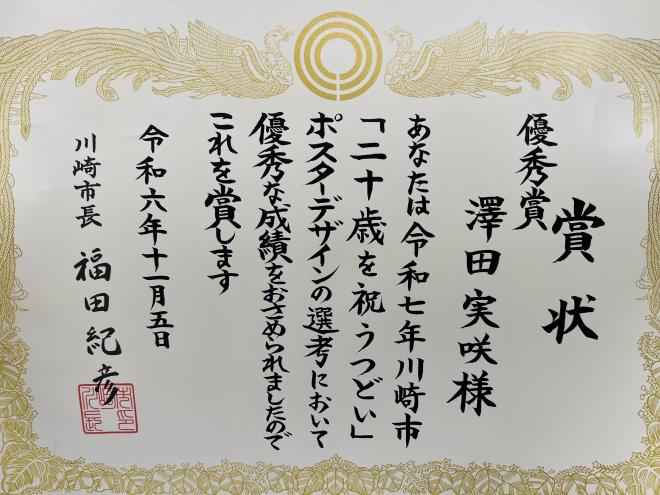 賞状
優秀賞
澤田実咲様
あなたは令和七年川崎市
「二十歳を祝うつどい」
ポスターデザインの選考において
優秀な成績をおさめられましたので
これを賞します
令和六年十一月五日
川崎市長 福田紀彦